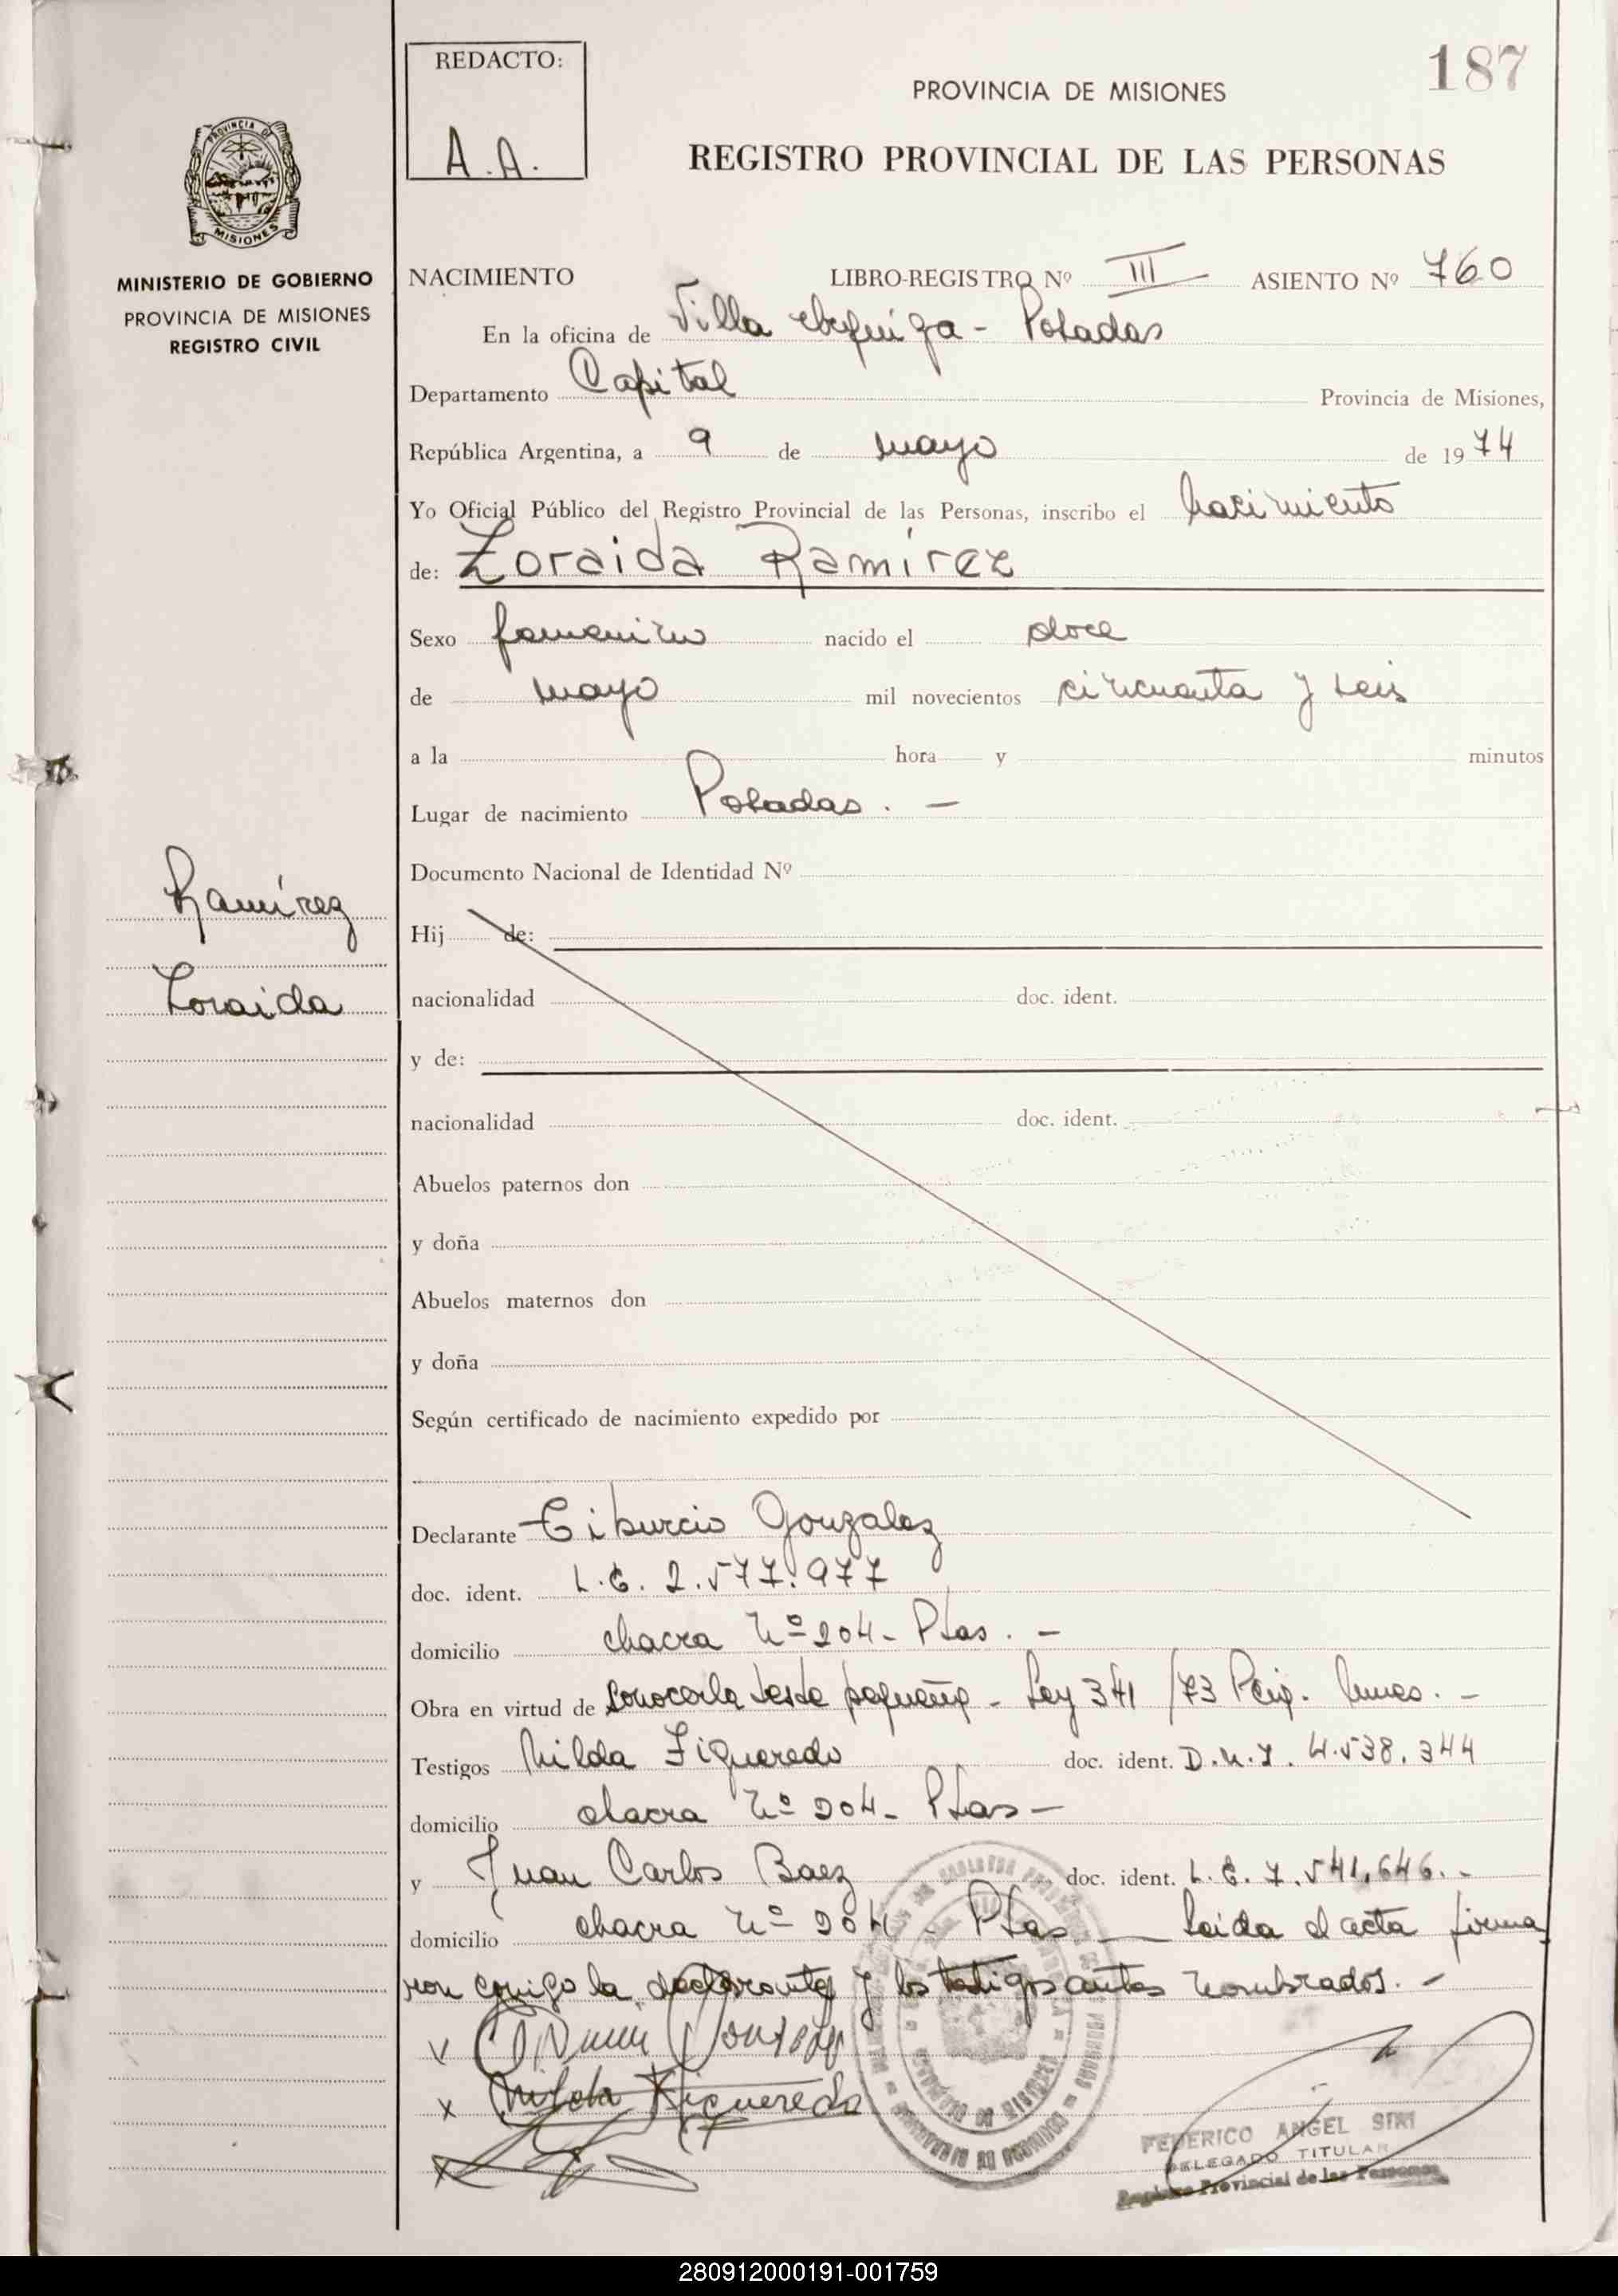 REDACTO:
A.A.
187
PROVINCIA DE MISIONES
REGISTRO PROVINCIAL DE LAS PERSONAS
PROVINCIA DE
MISIONES
MINISTERIO DE GOBIERNO
PROVINCIA DE MISIONES
REGISTRO CIVIL
NACIMIENTO LIBRO-REGISTRO Nº III ASIENTO Nº 760
En la oficina de Villa - Posadas
Departamento Capital Provincia de Misiones,
República Argentina, a 9 de mayo de 1974
Yo Oficial Público del Registro Provincial de las Personas, inscribo el nacimiento
de: Zoraida Ramírez
Sexo femenino nacido el doce
de mayo mil novecientos cincuenta y seis
a la hora y minutos
Lugar de nacimiento Posadas. -
Documento Nacional de Identidad Nº
Ramírez
Zoraida
Hij de:
nacionalidad doc. ident.
y de:
nacionalidad doc. ident.
Abuelos paternos don
y doña
Abuelos maternos don
y doña
Según certificado de nacimiento expedido por
Declarante Tiburcio Gonzalez
doc. ident. L.E. 2.577.977
domicilio chacra Nº 204 - Pdas. -
Obra en virtud de conocerla desde pequeña - Ley 341/73
Testigos Nilda Figueredo doc. ident. D.N.I. 4.538.344
domicilio chacra Nº 204 - Pdas -
y Juan Carlos Baez doc. ident. L.E. 7.541.646. -
domicilio chacra Nº 204 - Pdas — Leída el acta firma
ron conmigo la declarante y los testigos antes nombrados. -
x Nilda Figueredo
x
FEDERICO ANGEL SIRI
DELEGADO TITULAR
Registro Provincial de las Personas
280912000191-001759